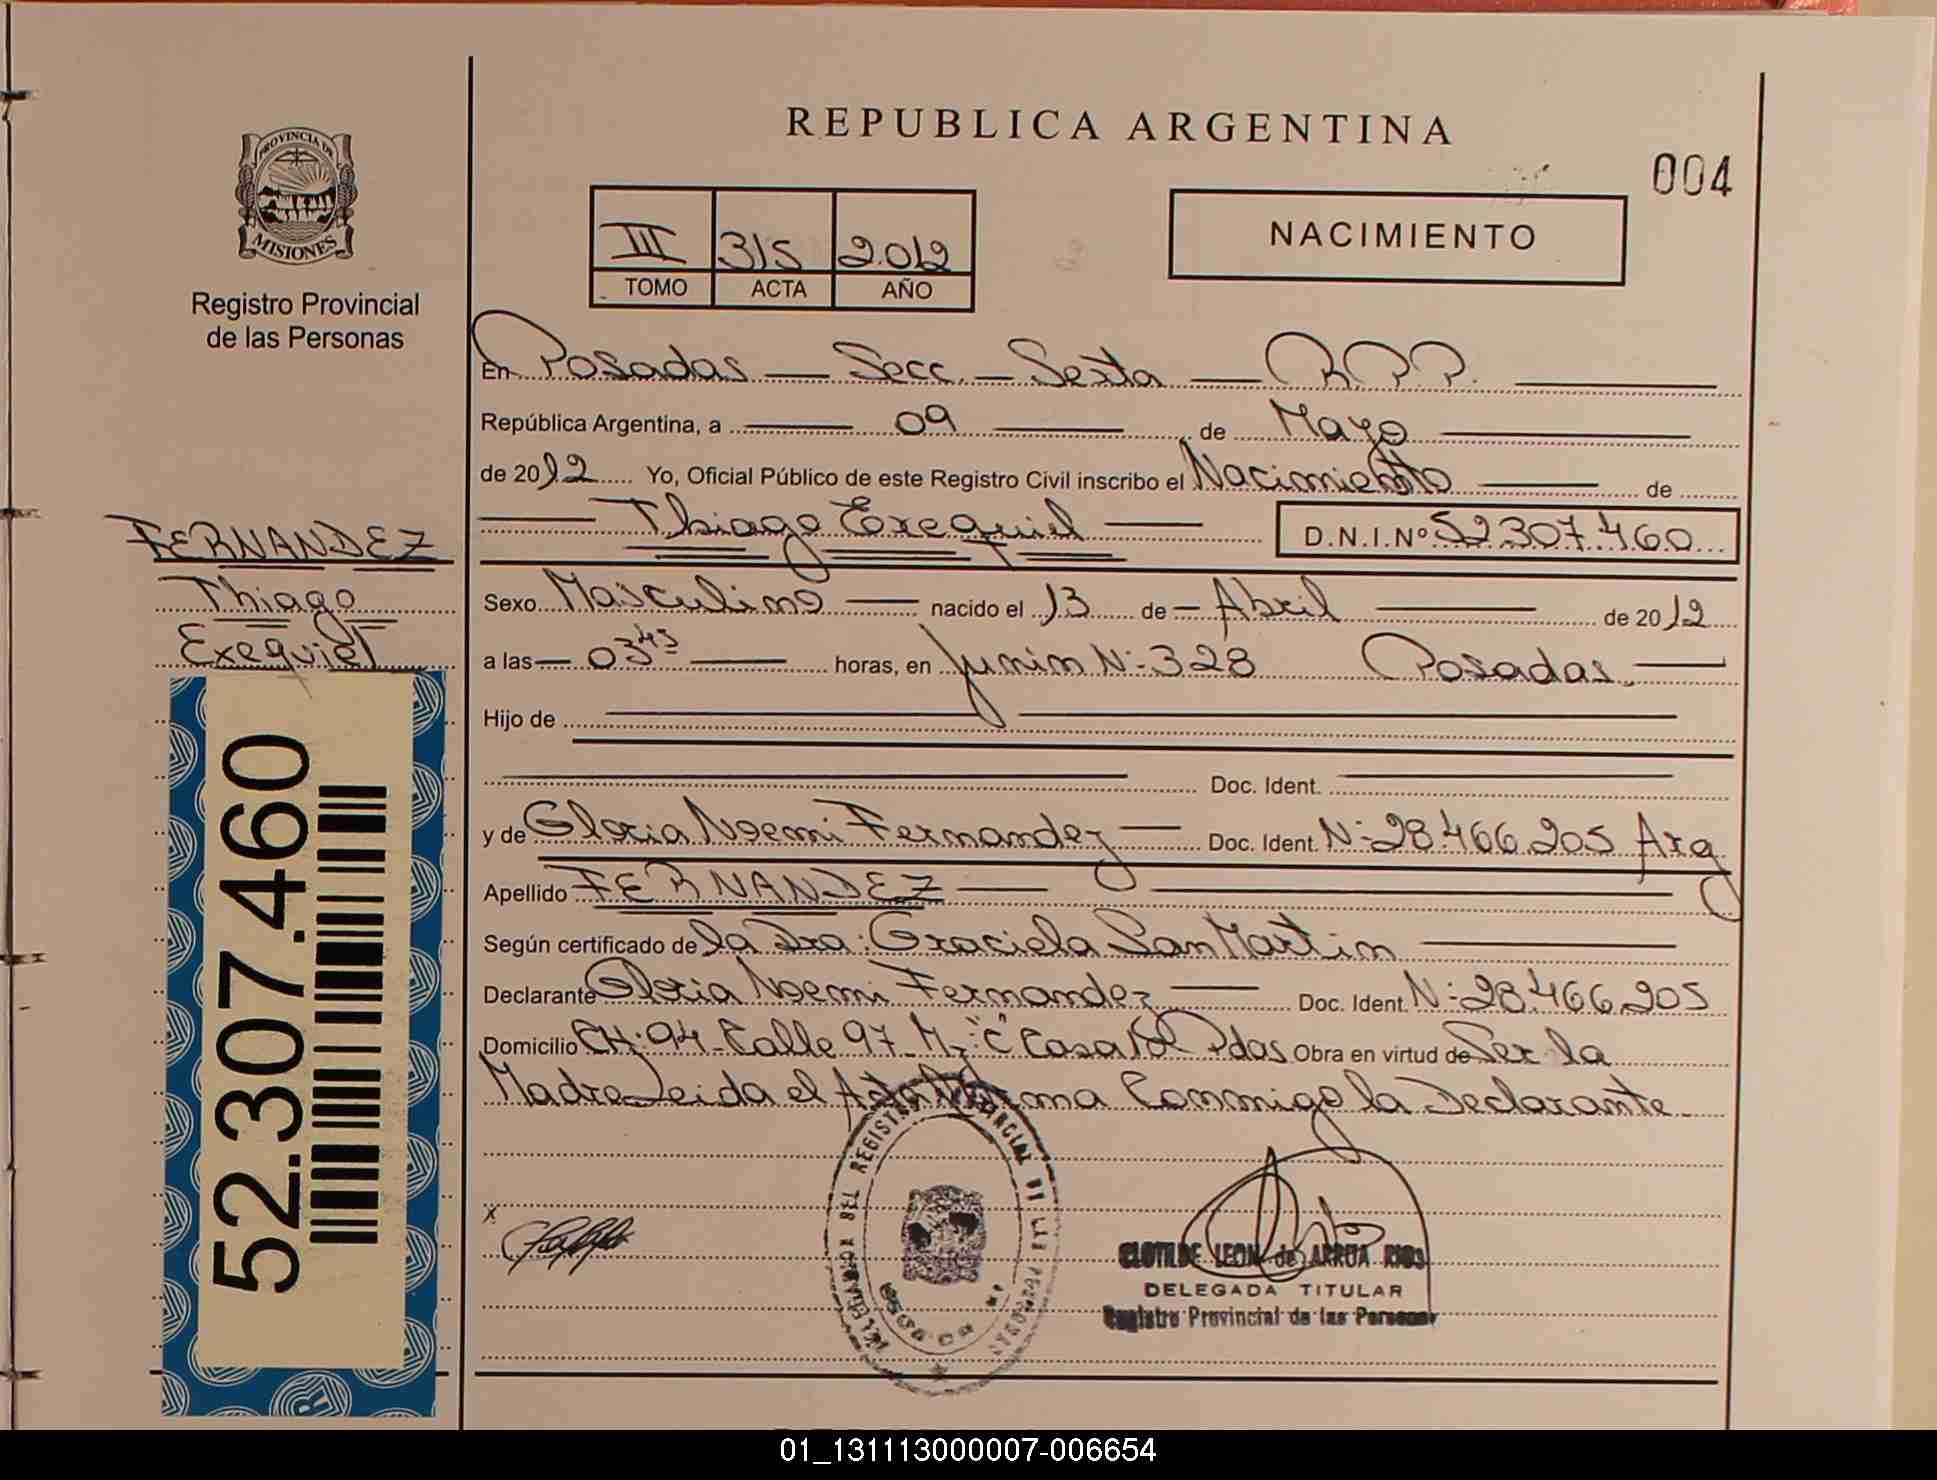 REPUBLICA ARGENTINA
004
PROVINCIA DE
MISIONES
Registro Provincial
de las Personas
III 315 2012
TOMO ACTA AÑO
NACIMIENTO
En Posadas — Secc. — Sexta — R.P.P.
República Argentina, a 09 de Mayo
de 2012 Yo, Oficial Público de este Registro Civil inscribo el Nacimiento de
Thiago Exequiel D.N.I.Nº 52.307.460
FERNANDEZ
Thiago
Exequiel
Sexo Masculino nacido el 13 de Abril de 2012
a las 03 45 horas, en Junin N: 328 Posadas.
Hijo de
Doc. Ident.
y de Gloria Noemi Fernandez Doc. Ident. N: 28.466.205 Arg
Apellido FERNANDEZ
Según certificado de la Dra: Graciela San Martin
Declarante Gloria Noemi Fernandez Doc. Ident. N: 28.466.205
Domicilio CH: 94 - Calle 97 - Mz "C" Casa Pdas Obra en virtud de Ser la
Madre Leida el Acta Firma Conmigo la Declarante.
52.307.460
X
CLOTILDE LEON de ARRUA RIOS
DELEGADA TITULAR
Registro Provincial de las Personas
01_131113000007-006654